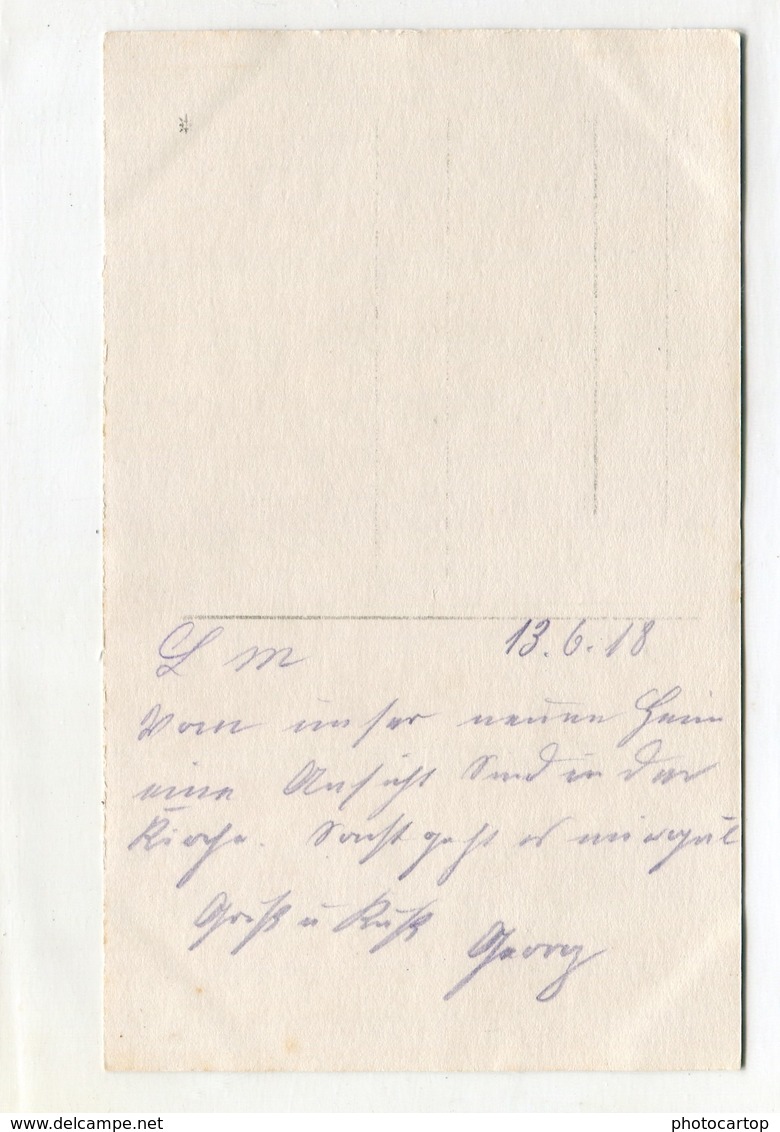 L M 13.6.18
Vom unser neuen Heim
eine Ansicht Sind in der
Kirche. Sonst geht es mir gut
Gruß u Kuß
Georg
www.delcampe.net photocartop